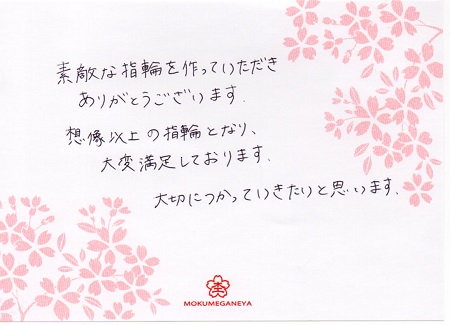 素敵な指輪を作っていただき
ありがとうございます.
想像以上の指輪となり、
大変満足しております.
大切につかっていきたいと思います.
MOKUMEGANEYA